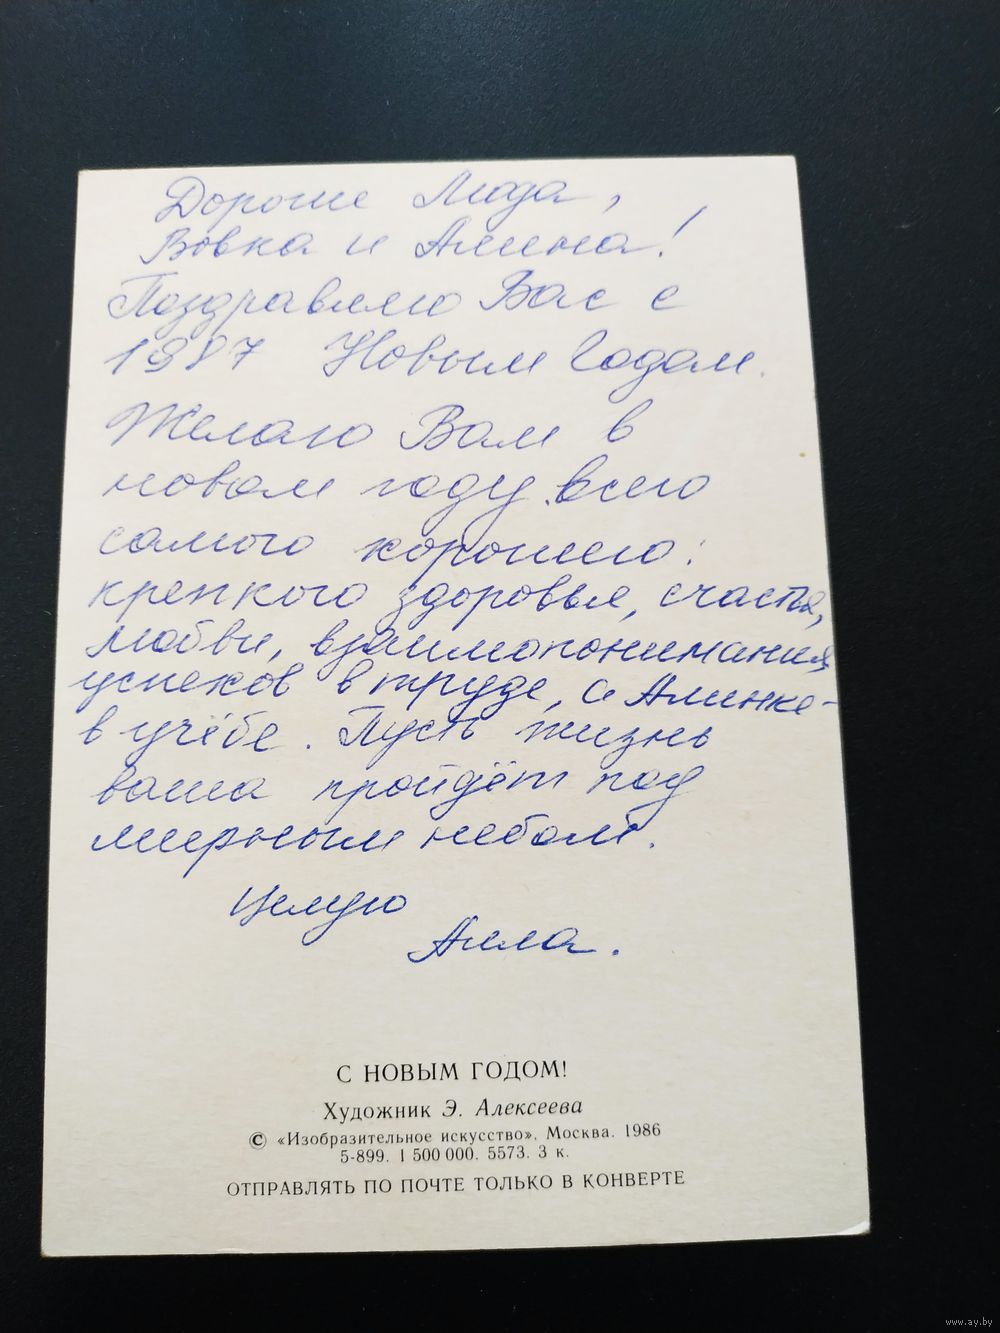 Дорогие Люда,
Вовка и Алина!
Поздравляю Вас с
1987 Новым Годом.
Желаю Вам в
новом году всего
самого хорошего:
крепкого здоровья, счастья,
любви, взаимопонимания,
успехов в труде, а Алинке -
в учёбе. Пусть жизнь
ваша пройдёт под
мирным небом.
Целую
Алла.
С НОВЫМ ГОДОМ!
Художник Э. Алексеева
© «Изобразительное искусство». Москва. 1986
5-899. 1 500 000. 5573. 3 к.
ОТПРАВЛЯТЬ ПО ПОЧТЕ ТОЛЬКО В КОНВЕРТЕ
www.ay.by